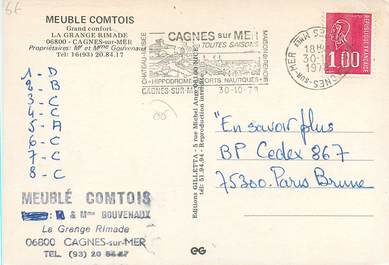 MEUBLE COMTOIS
Grand confort
LA GRANGE RIMADE
06800 - CAGNES-sur-MER
Propriétaires: Mr et Mme Gouvenaux
Tél: 16(93) 20.84.17
1 - D
2 - B
3 - C
4 - C
5 - A
6 - C
7 - C
8 - C
MEUBLÉ COMTOIS
& Mme GOUVENAUX
La Grange Rimade
06800 CAGNES-sur-MER
TEL. (93) 20
CHATEAU-MUSEE
CAGNES sur MER
TOUTES SAISONS
HIPPODROME SPORTS NAUTIQUES
CAGNES-SUR-MER 30-10-79
18H
30-10
1979
CAGNES-SUR-MER
1,00
Editions GILLETTA - 5 rue Michel Ange
tél: 51.94.94 - Reproduction
"En savoir plus"
BP Cedex 867
75300. Paris Brune